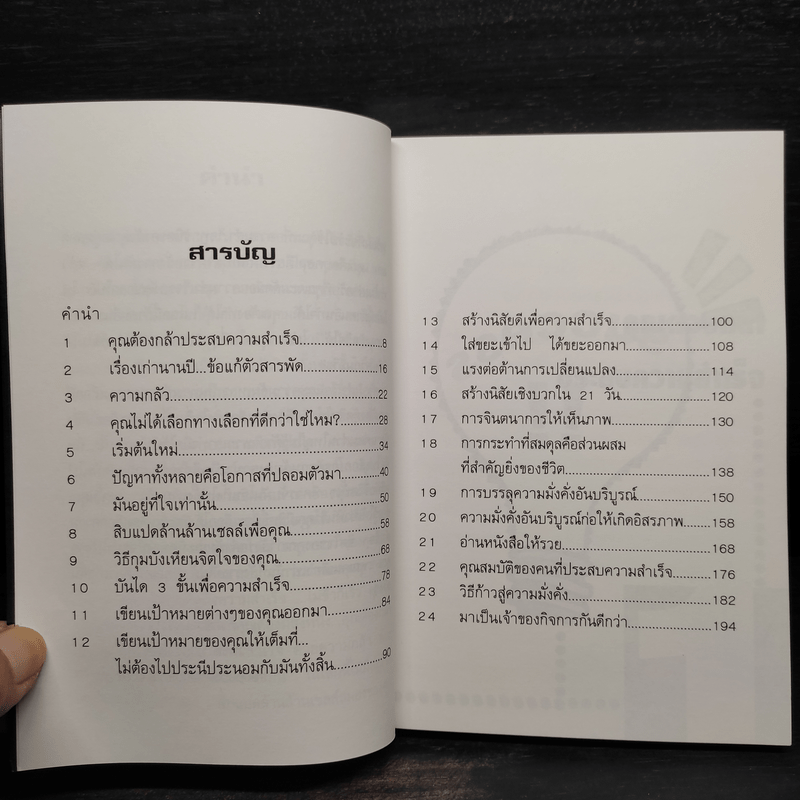 สารบัญ
คำนำ
1 คุณต้องกล้าประสบความสำเร็จ...........................8
2 เรื่องเก่านานปี...ข้อแก้ตัวสารพัด.........................16
3 ความกลัว..................................................22
4 คุณไม่ได้เลือกทางเลือกที่ดีกว่าใช่ไหม?................28
5 เริ่มต้นใหม่................................................34
6 ปัญหาทั้งหลายคือโอกาสที่ปลอมตัวมา................40
7 มันอยู่ที่ใจเท่านั้น........................................50
8 สิบแปดล้านล้านเซลล์เพื่อคุณ..........................58
9 วิธีกุมบังเหียนจิตใจของคุณ.............................68
10 บันได 3 ขั้นเพื่อความสำเร็จ...........................78
11 เขียนเป้าหมายต่างๆของคุณออกมา..................84
12 เขียนเป้าหมายของคุณให้เต็มที่...
ไม่ต้องไปประนีประนอมกับมันทั้งสิ้น....................90
13 สร้างนิสัยดีเพื่อความสำเร็จ..........................100
14 ใส่ขยะเข้าไป ได้ขยะออกมา.........................108
15 แรงต่อต้านการเปลี่ยนแปลง..........................114
16 สร้างนิสัยเชิงบวกใน 21 วัน.........................120
17 การจินตนาการให้เห็นภาพ...........................130
18 การกระทำที่สมดุลคือส่วนผสม
ที่สำคัญยิ่งของชีวิต....................................138
19 การบรรลุความมั่งคั่งอันบริบูรณ์.....................150
20 ความมั่งคั่งอันบริบูรณ์ก่อให้เกิดอิสรภาพ..........158
21 อ่านหนังสือให้รวย.....................................168
22 คุณสมบัติของคนที่ประสบความสำเร็จ..............176
23 วิธีก้าวสู่ความมั่งคั่ง...................................182
24 มาเป็นเจ้าของกิจการกันดีกว่า.......................194